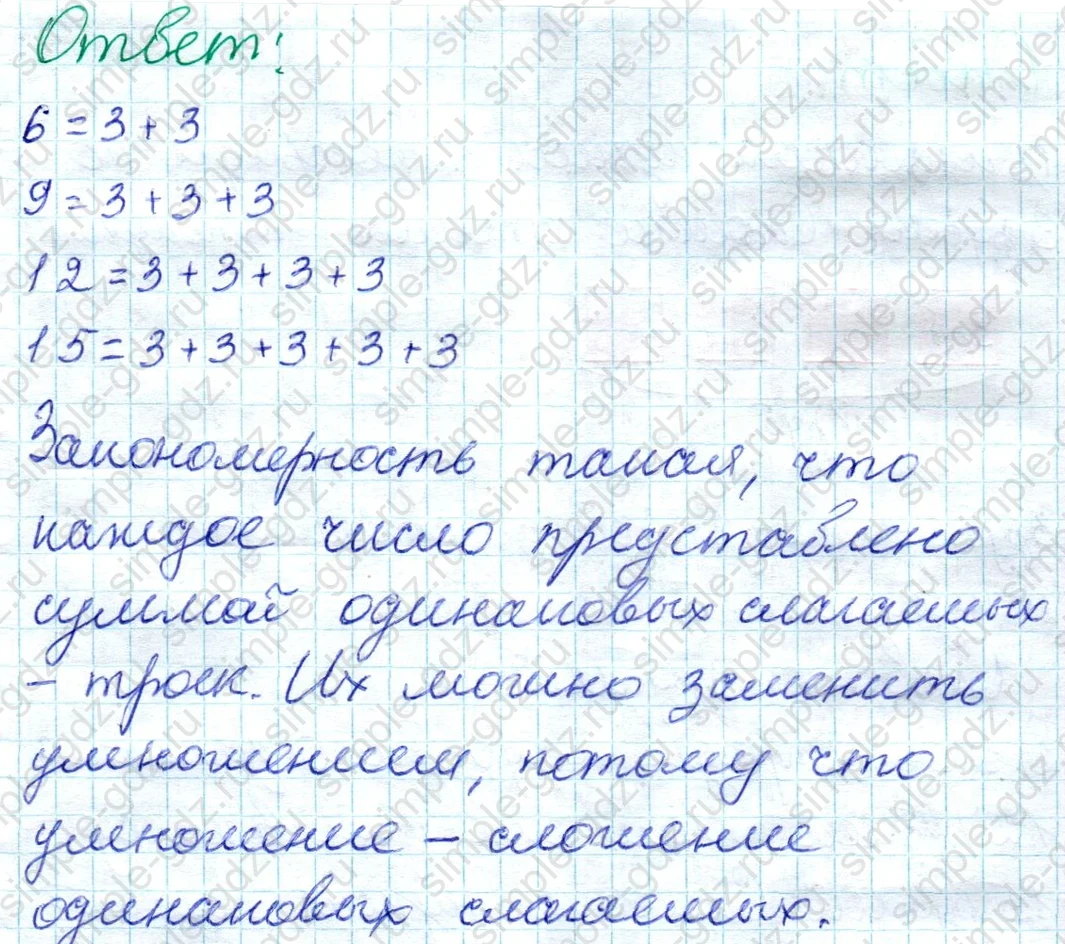 Ответ:
6 = 3 + 3
9 = 3 + 3 + 3
12 = 3 + 3 + 3 + 3
15 = 3 + 3 + 3 + 3 + 3
Закономерность такая, что
каждое число представлено
суммой одинаковых слагаемых
- троек. Их можно заменить
умножением, потому что
умножение – сложение
одинаковых слагаемых.
simple-gdz.ru